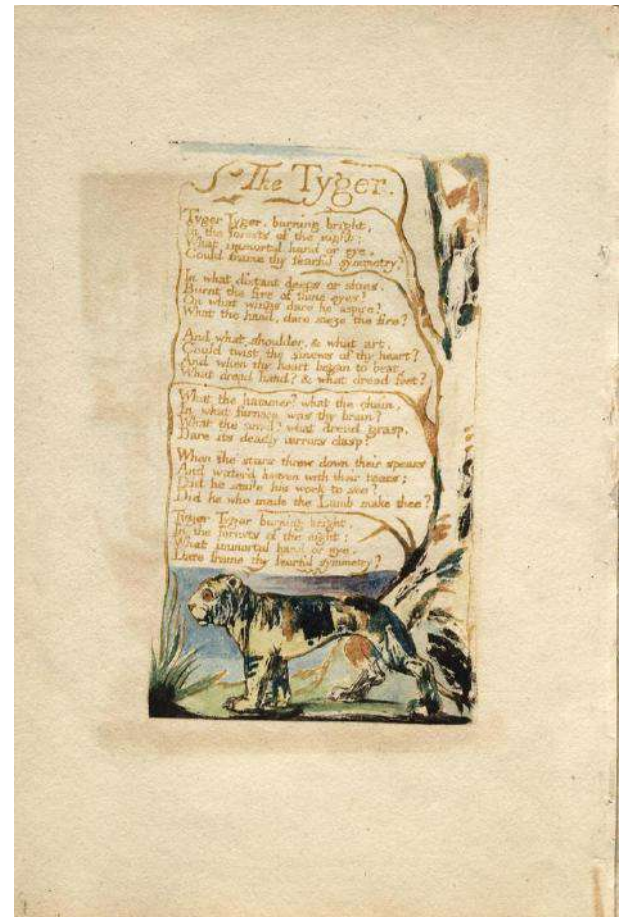 The Tyger.
Tyger Tyger, burning bright,
In the forests of the night;
What immortal hand or eye,
Could frame thy fearful symmetry?
In what distant deeps or skies,
Burnt the fire of thine eyes?
On what wings dare he aspire?
What the hand, dare sieze the fire?
And what shoulder, & what art,
Could twist the sinews of thy heart?
And when thy heart began to beat,
What dread hand? & what dread feet?
What the hammer? what the chain,
In what furnace was thy brain?
What the anvil? what dread grasp,
Dare its deadly terrors clasp!
When the stars threw down their spears
And water'd heaven with their tears:
Did he smile his work to see?
Did he who made the Lamb make thee?
Tyger Tyger burning bright,
In the forests of the night:
What immortal hand or eye,
Dare frame thy fearful symmetry?